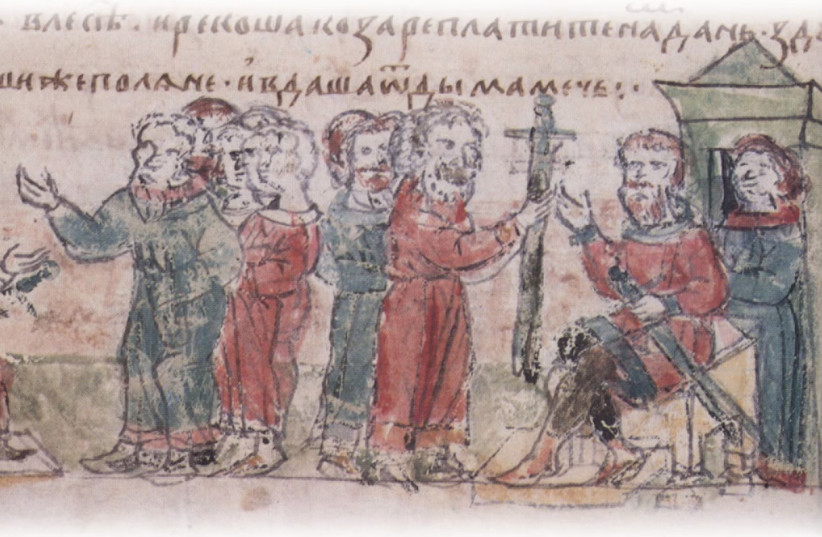 влесѣ · ирекошакозареплатитенадань · зд
шижеполяне · ивдашаѿдымамечь :·